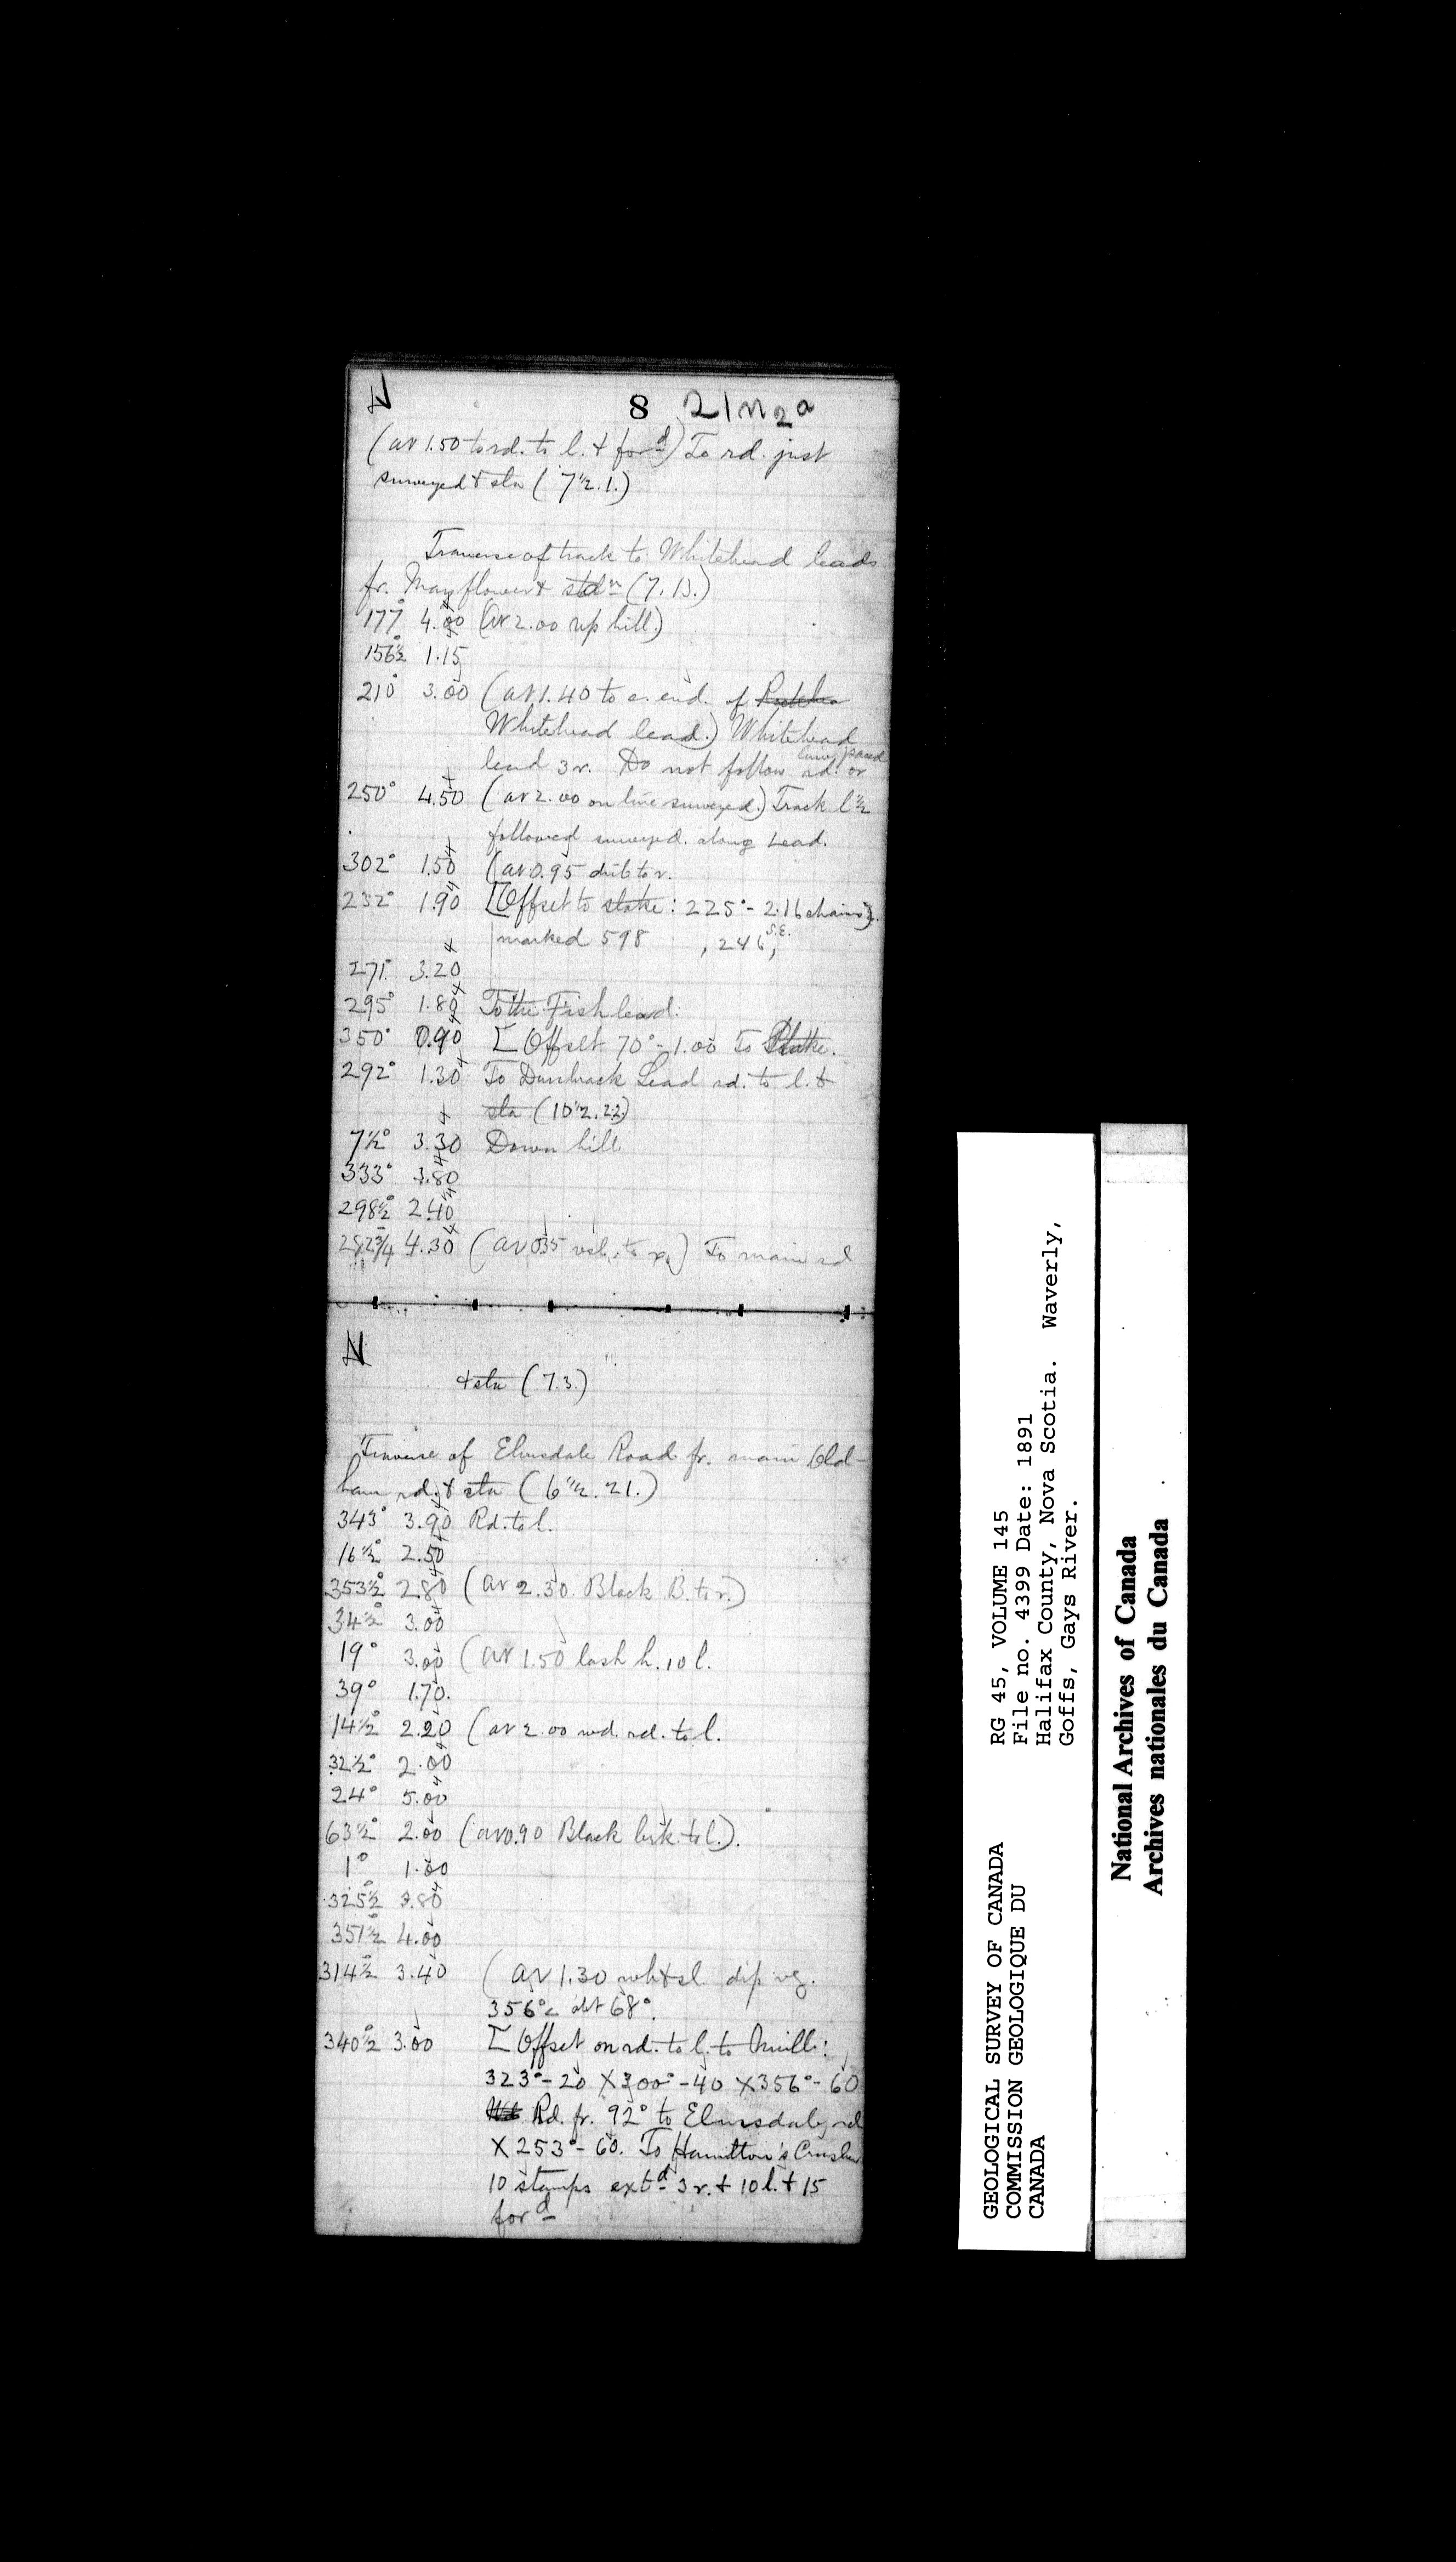 N
8 21N2a
(at 1.50 to rd. to l. & for^d) To rd. just
surveyed & stn (7½.1.)
Traverse of track to Whitehead leads
fr. Mayflower & stn (7.13.)
177° 4.00 (at 2.00 up hill.)
156½° 1.15
210° 3.00 (at 1.40 to e. end of
Whitehead lead.) Whitehead
lead 3 r. Do not follow rd. or
line paced
250° 4.50 (at 2.00 on line surveyed.) Track l ½
followed surveyed along Lead.
302° 1.50 (at 0.95 to r.
232° 1.90 [Offset to stake: 225° - 2.16 chains
marked 598 , 246, S.E.
271° 3.20
295° 1.80 To the Fish lead.
350° 0.90 [Offset 70° - 1.00 to Stake.
292° 1.30 To Dunbrack Lead rd. to l. &
stn (10½.22)
7½° 3.30 Down hill
333° 3.80
298½° 2.40
282¾° 4.30 (at 035 to r.) To main rd
N
& stn (7.3.)
Traverse of Elmsdale Road fr. main Old-
ham rd. & stn (6½.21.)
343° 3.90 Rd. to l.
16½° 2.50
353½° 2.80 (at 2.30 Black B. to r.)
34½° 3.00
19° 3.00 (at 1.50 last h. 10 l.
39° 1.70.
14½° 2.20 (at 2.00 wd. rd. to l.
32½° 2.00
24° 5.00
63½° 2.00 (at 0.90 Black brk. to l.).
1° 1.00
325½° 3.80
351½° 4.00
314½° 3.40 (at 1.30 wh & sl dip vg.
356° < abt 68°.
340½° 3.00 [Offset on rd. to l. to mill:
323° - 20 X 300° - 40 X 356° - 60
Rd. fr. 92° to Elmsdale rd
X 253° - 60. To Hamilton's Crusher
10 stamps ext^d 3 r. & 10 l. & 15
for^d
GEOLOGICAL SURVEY OF CANADA
COMMISSION GEOLOGIQUE DU
CANADA
RG 45, VOLUME 145
File no. 4399 Date: 1891
Halifax County, Nova Scotia. Waverly,
Goffs, Gays River.
National Archives of Canada
Archives nationales du Canada